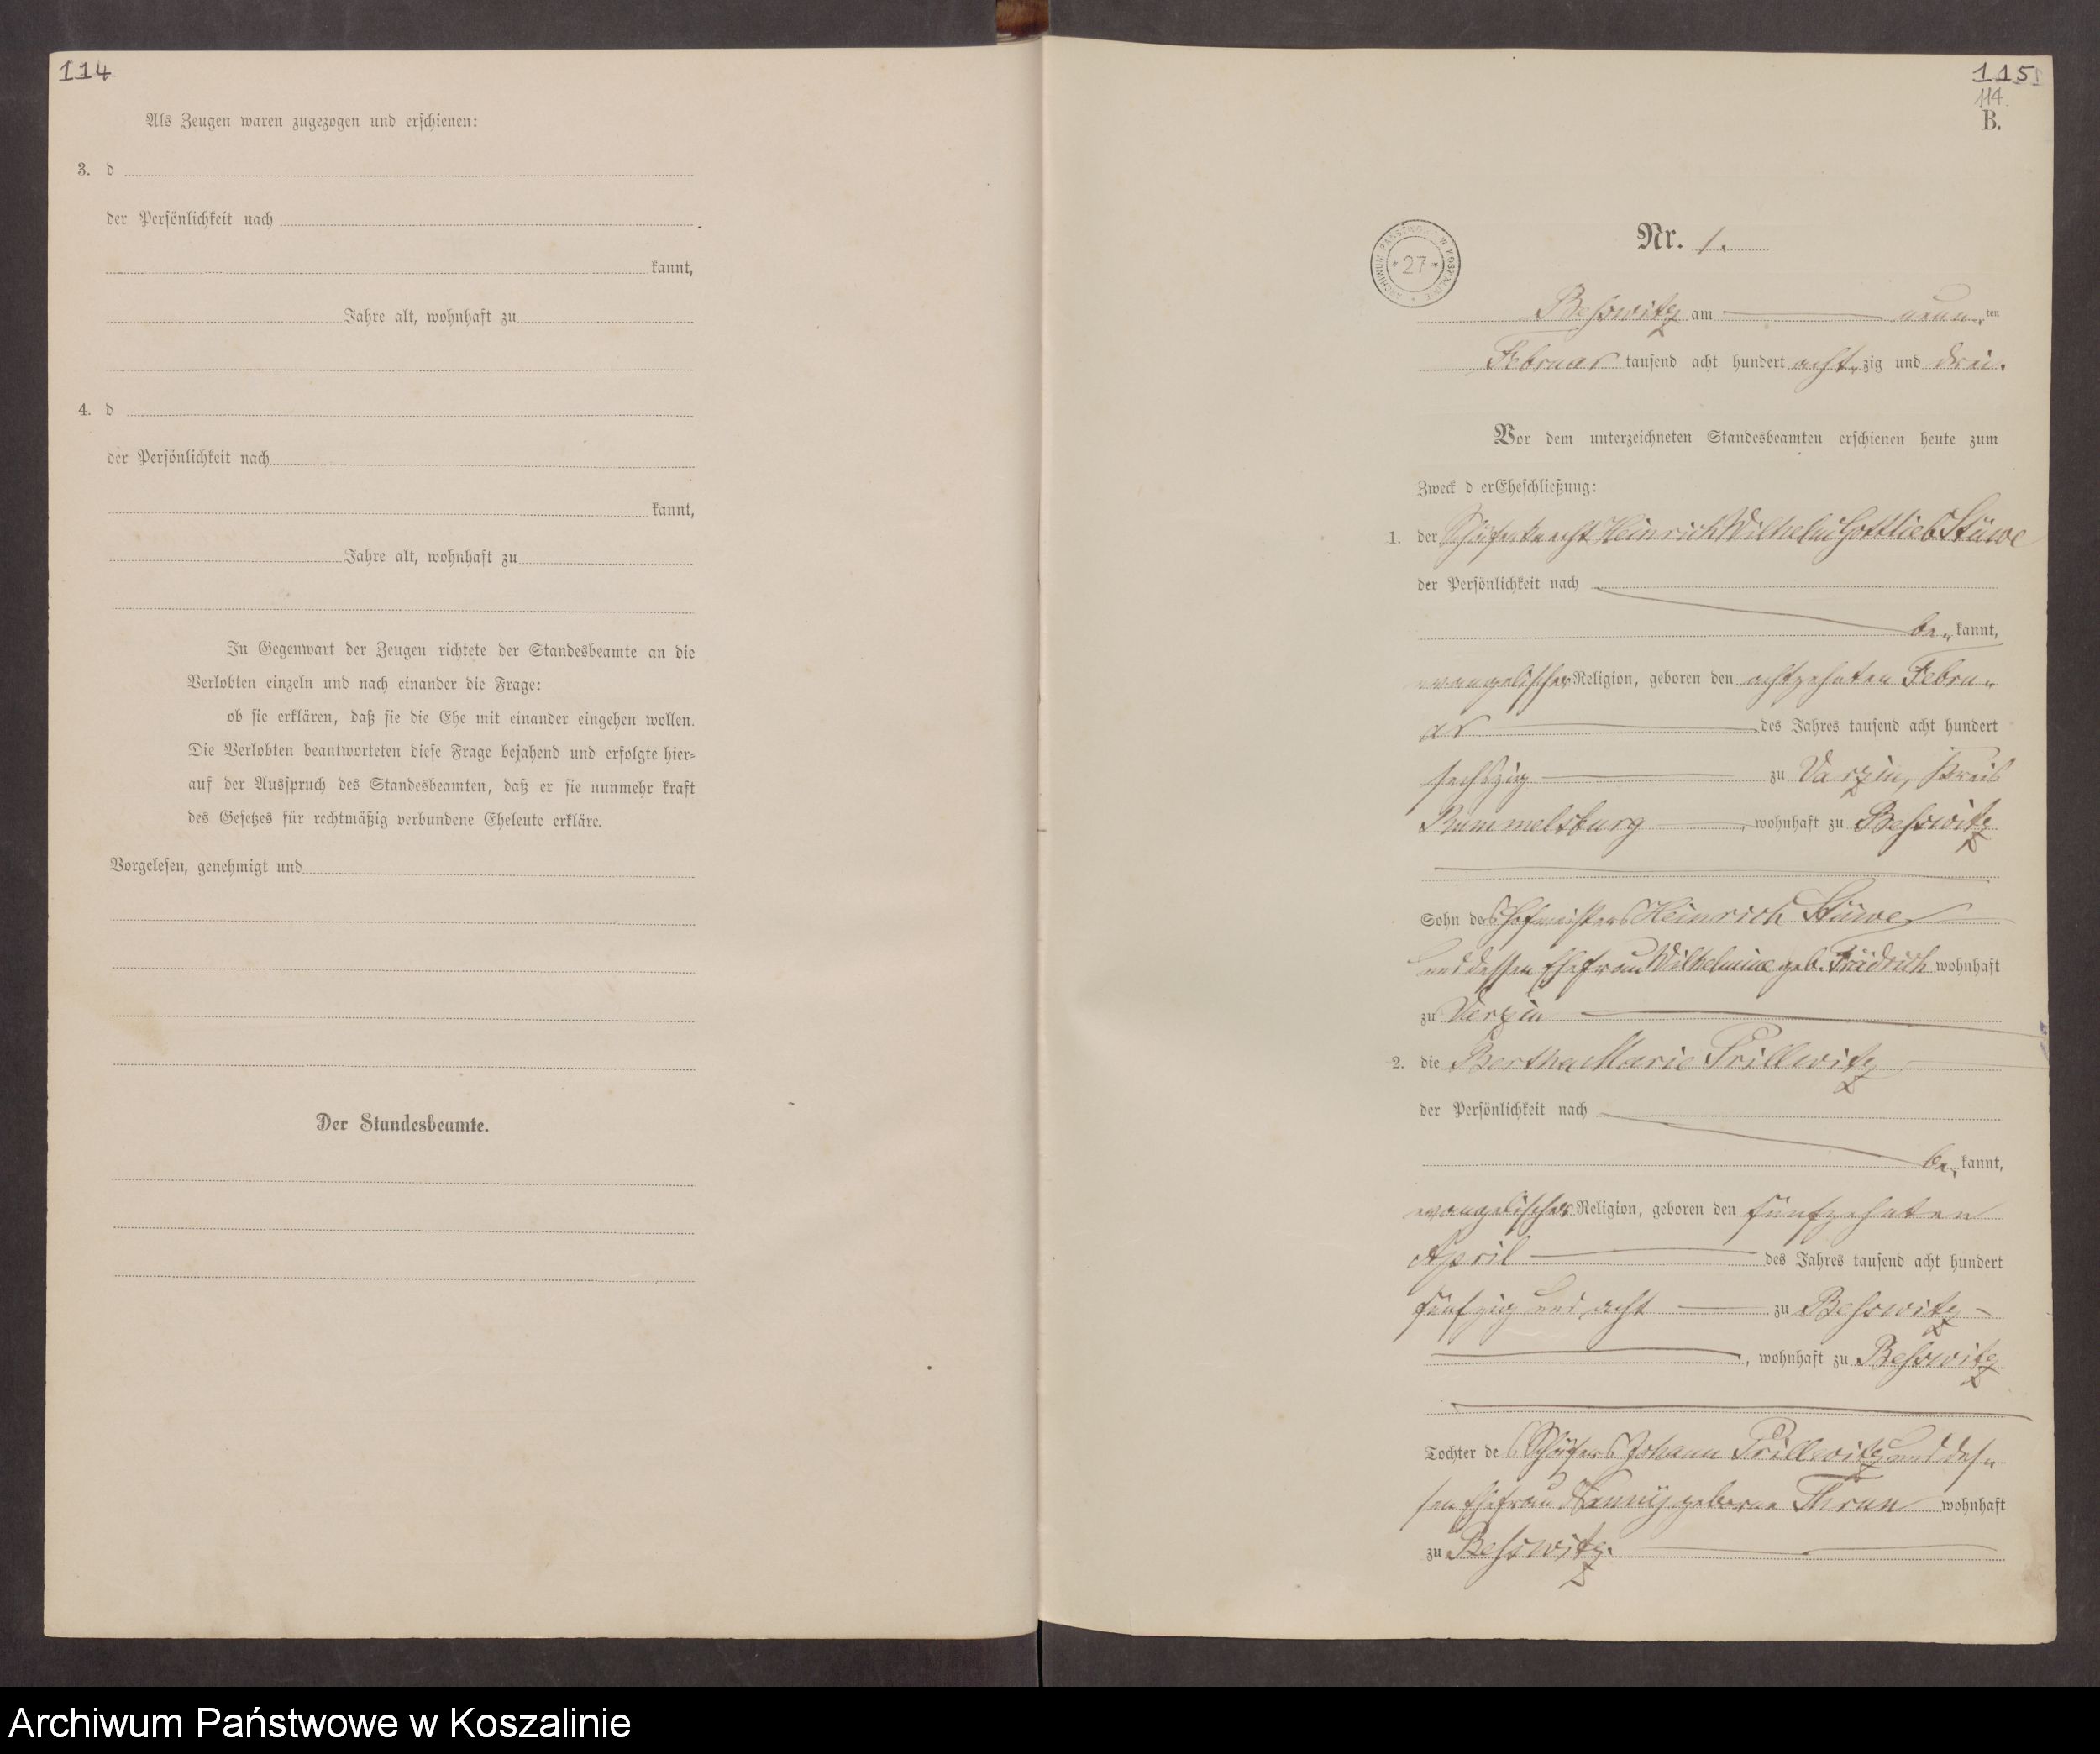 114
Als Zeugen waren zugezogen und erschienen:
3. d
der Persönlichkeit nach
kannt,
Jahre alt, wohnhaft zu
4. d
der Persönlichkeit nach
kannt,
Jahre alt, wohnhaft zu
In Gegenwart der Zeugen richtete der Standesbeamte an die
Verlobten einzeln und nach einander die Frage:
ob sie erklären, daß sie die Ehe mit einander eingehen wollen.
Die Verlobten beantworteten diese Frage bejahend und erfolgte hier-
auf der Ausspruch des Standesbeamten, daß er sie nunmehr kraft
des Gesetzes für rechtmäßig verbundene Eheleute erkläre.
Vorgelesen, genehmigt und
Der Standesbeamte.
115
114
B.
ARCHIWUM PAŃSTWOWE W KOSZALINIE * 27 *
Nr. 1.
Beßwitz am neun ten
Februar tausend acht hundert acht zig und drei.
Vor dem unterzeichneten Standesbeamten erschienen heute zum
Zweck d er Eheschließung:
1. der Schäferknecht Heinrich Wilhelm Gottlieb Stüwe
der Persönlichkeit nach
be kannt,
evangelischer Religion, geboren den achtzehnten Febru-
ar des Jahres tausend acht hundert
sechszig zu Varzin, Kreis
Rummelsburg, wohnhaft zu Beßwitz
Sohn des Hofmeisters Heinrich Stüwe
und dessen Ehefrau Wilhelmine geb. Frädrich wohnhaft
zu Varzin
2. die Bertha Marie Prillwitz
der Persönlichkeit nach
be kannt,
evangelischer Religion, geboren den fünfzehnten
April des Jahres tausend acht hundert
fünfzig und acht zu Beßwitz
, wohnhaft zu Beßwitz
Tochter des Schäfers Johann Prillwitz und des-
sen Ehefrau geborne Thrun wohnhaft
zu Beßwitz.
Archiwum Państwowe w Koszalinie